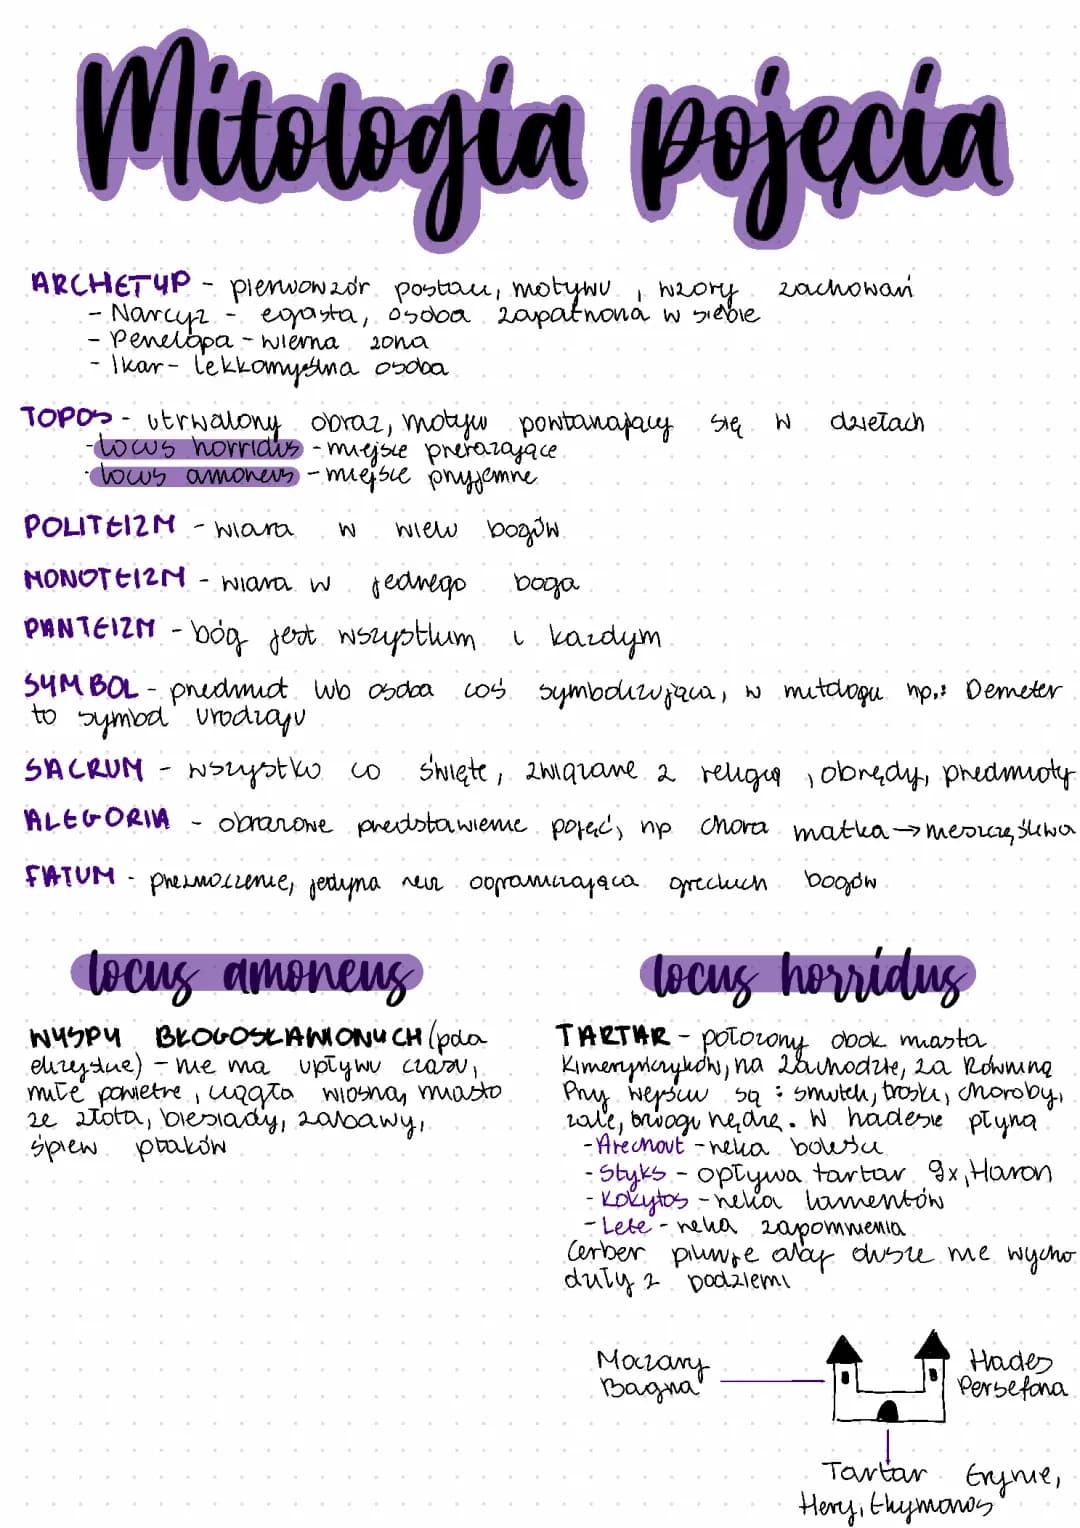 Mitologia pojęcia
ARCHETYP - pierwowzór postaci, motywu, wzory zachowań
- Narcyz - egoista, osoba zapatrzona w siebie
- Penelopa - wierna żona
- Ikar - lekkomyślna osoba
TOPOS - utrwalony obraz, motyw powtarzający się w dziełach
- locus horridus - miejsce przerażające
- locus amoneus - miejsce przyjemne
POLITEIZM - wiara w wielu bogów
MONOTEIZM - wiara w jednego boga
PANTEIZM - bóg jest wszystkim i każdym
SYMBOL - przedmiot lub osoba coś symbolizująca, w mitologii np.: Demeter
to symbol urodzaju
SACRUM - wszystko co święte, związane z religią, obrędy, przedmioty
ALEGORIA - obrazowe przedstawienie pojęć, np chora matka → nieszczęśliwa
FATUM - przeznaczenie, jedyna rzecz ograniczająca greckich bogów
locus amoneus
WYSPY BŁOGOSŁAWIONYCH (pola
elizejskie) - nie ma upływu czasu,
miłe powietrze, ciągła wiosna, miasto
ze złota, biesiady, zabawy,
śpiew ptaków
locus horridus
TARTAR - położony obok miasta
na zachodzie, za Równiną
Przy wejściu są: smutek, troski, choroby,
żale, nędza. W hadesie płyną
- Arechout - rzeka boleści
- Styks - opływa tartar 9x, Haron
- Kokytos - rzeka lamentów
- Lete - rzeka zapomnienia
Cerber pilnuje aby dusze nie wycho
dziły z podziemi
Moczary
Bagna
Hades
Persefona
Tartar Erynie,
Hery, thymanos